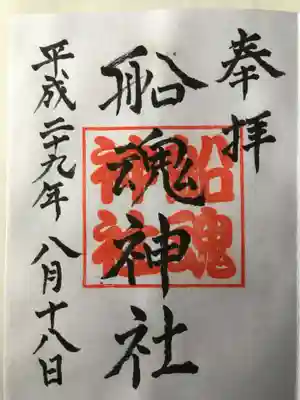 奉拝
船魂神社
船魂神社
平成二十九年八月十八日